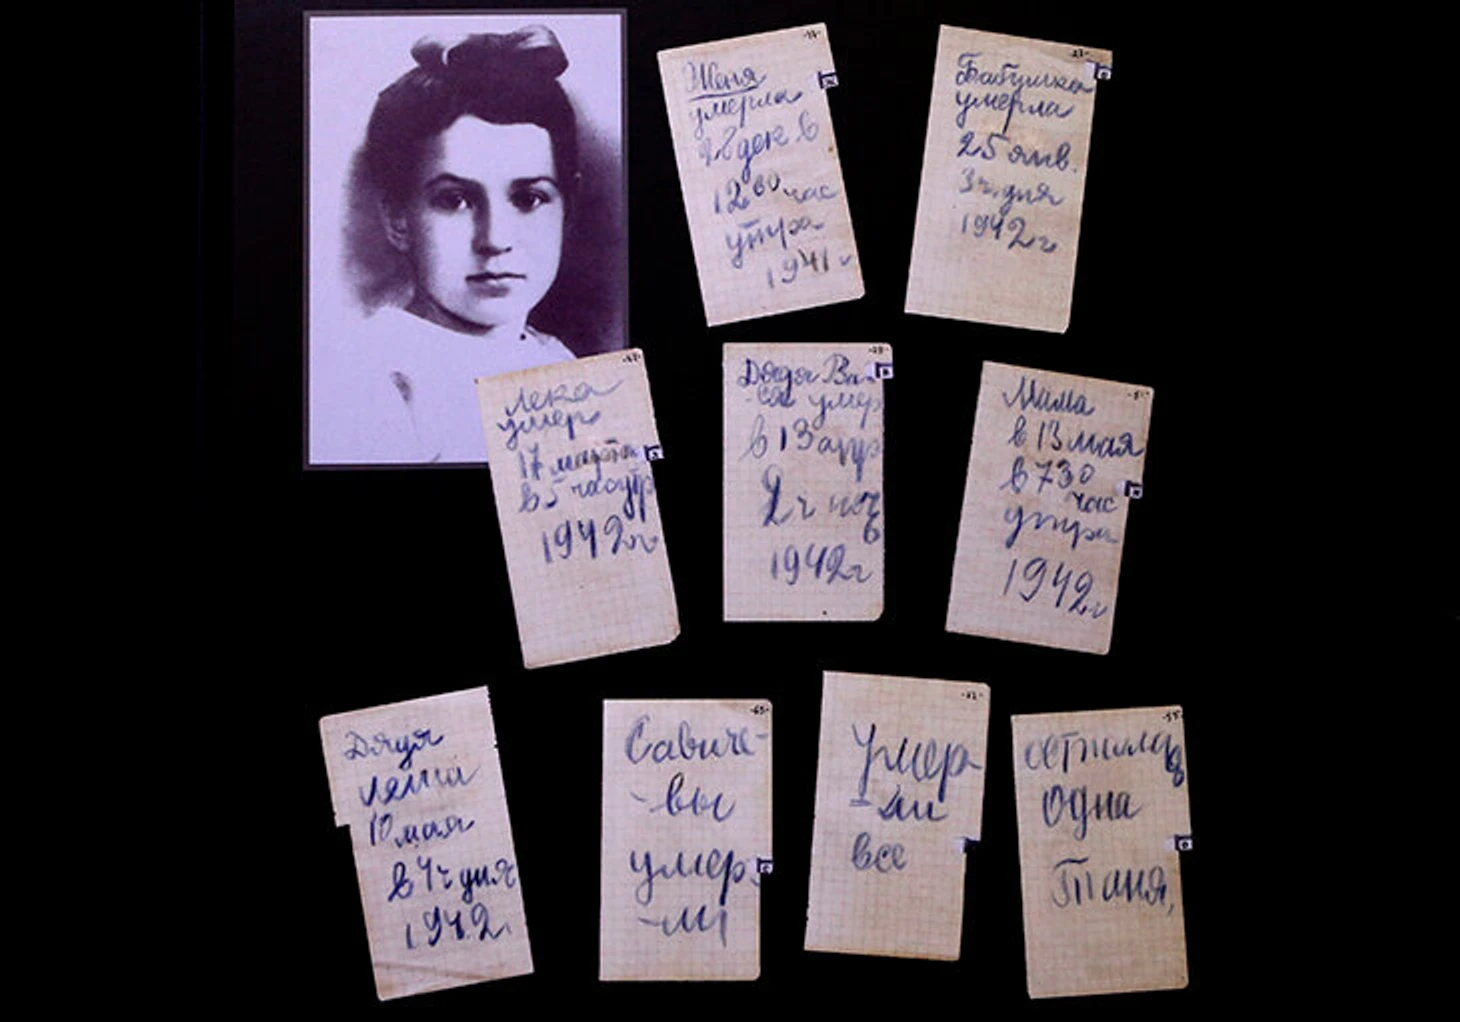 Женя
умерла
28 дек в
12 00 час
утра
1941 г
Бабушка
умерла
25 янв.
3 ч. дня
1942 г
Лека
умер
17 марта
в 5 час утр
1942 г
Дядя Ва-
ся умер
в 13 апр
2 ч ноч
1942 г
Мама
в 13 мая
в 7 30
час
утра
1942 г
Дядя
Леша
10 мая
в 4 ч дня
1942
Савиче-
-вы
умер
-ли
Умер
-ли
все
Осталась
одна
Таня